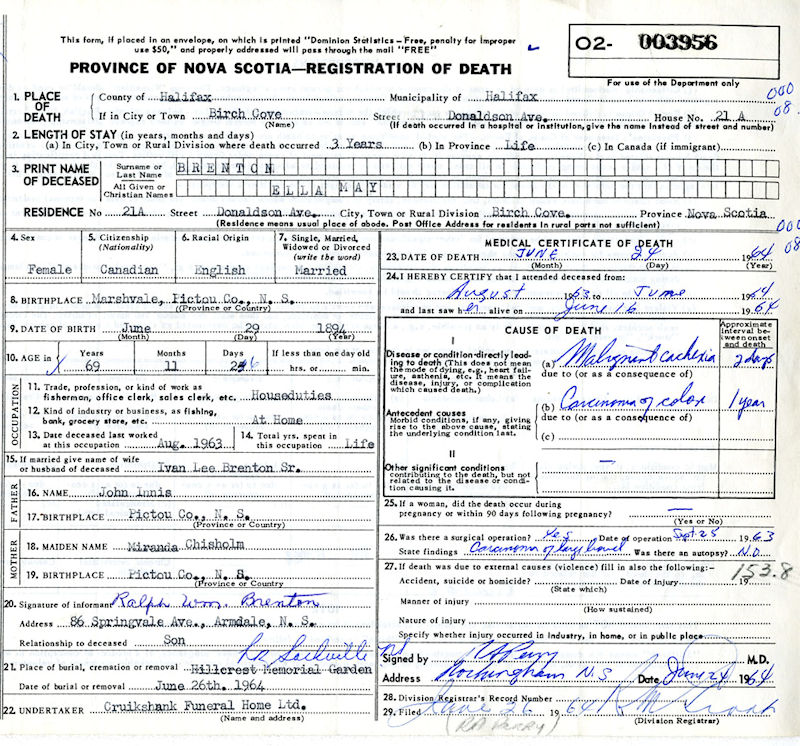 This form, if placed in an envelope, on which is printed "Dominion Statistics—Free, penalty for improper
use $50," and properly addressed will pass through the mail "FREE"
O2- 003956
PROVINCE OF NOVA SCOTIA—REGISTRATION OF DEATH
For use of the Department only
1. PLACE OF DEATH County of Halifax Municipality of Halifax 000
If in City or Town Birch Cove Street Donaldson Ave. House No. 21 A 08.
(Name) (If death occurred in a hospital or institution, give the name instead of street and number)
2. LENGTH OF STAY (in years, months and days)
(a) In City, Town or Rural Division where death occurred 3 Years (b) In Province Life (c) In Canada (if immigrant)
3. PRINT NAME OF DECEASED Surname or Last Name BRENTON
All Given or Christian Names ELLA MAY
RESIDENCE No 21A Street Donaldson Ave. City, Town or Rural Division Birch Cove. Province Nova Scotia
(Residence means usual place of abode. Post Office Address for residents in rural parts not sufficient) 000
08
4. Sex 5. Citizenship (Nationality) 6. Racial Origin 7. Single, Married, Widowed or Divorced (write the word)
Female Canadian English Married
8. BIRTHPLACE Marshvale, Pictou Co., N. S.
(Province or Country)
9. DATE OF BIRTH June 29 1894
(Month) (Day) (Year)
10. AGE in Years Months Days If less than one day old
69 11 26 hrs. or min.
OCCUPATION
11. Trade, profession, or kind of work as
fisherman, office clerk, sales clerk, etc. Houseduties
12. Kind of industry or business, as fishing,
bank, grocery store, etc. At Home
13. Date deceased last worked at this occupation Aug. 1963 14. Total yrs. spent in this occupation Life
15. If married give name of wife
or husband of deceased Ivan Lee Brenton Sr.
FATHER
16. NAME John Innis
17. BIRTHPLACE Pictou Co., N. S.
(Province or Country)
MOTHER
18. MAIDEN NAME Miranda Chisholm
19. BIRTHPLACE Pictou Co., N. S.
(Province or Country)
20. Signature of informant Ralph Wm. Brenton
Address 86 Springvale Ave., Armdale, N. S.
Relationship to deceased Son
Sackville
21. Place of burial, cremation or removal Hillcrest Memorial Garden
Date of burial or removal June 26th. 1964
22. UNDERTAKER Cruikshank Funeral Home Ltd.
(Name and address)
MEDICAL CERTIFICATE OF DEATH
23. DATE OF DEATH JUNE 24 1964
(Month) (Day) (Year)
24. I HEREBY CERTIFY that I attended deceased from:
August 1963 to June 1964
and last saw her alive on June 16 1964
CAUSE OF DEATH Approximate interval between onset and death
I
Disease or condition directly leading to death (This does not mean the mode of dying, e.g., heart failure, asthenia, etc. It means the disease, injury, or complication which caused death.)
(a) Malignant cachexia 2 days
due to (or as a consequence of)
Antecedent causes
Morbid conditions, if any, giving rise to the above cause, stating the underlying condition last.
(b) Carcinoma of colon 1 year
due to (or as a consequence of)
(c)
II
Other significant conditions
contributing to the death, but not related to the disease or condition causing it. —
25. If a woman, did the death occur during
pregnancy or within 90 days following pregnancy? —
(Yes or No)
26. Was there a surgical operation? Yes Date of operation Sept. 25 1963
State findings Carcinoma of large bowel Was there an autopsy? NO
27. If death was due to external causes (violence) fill in also the following:— 153.8
Accident, suicide or homicide? Date of injury 19
(State which)
Manner of injury
(How sustained)
Nature of injury
Specify whether injury occurred in industry, in home, or in public place
Signed by M.D.
Address Rockingham N S Date June 24 1964
28. Division Registrar's Record Number
29. Filed June 26 1964
(Division Registrar)